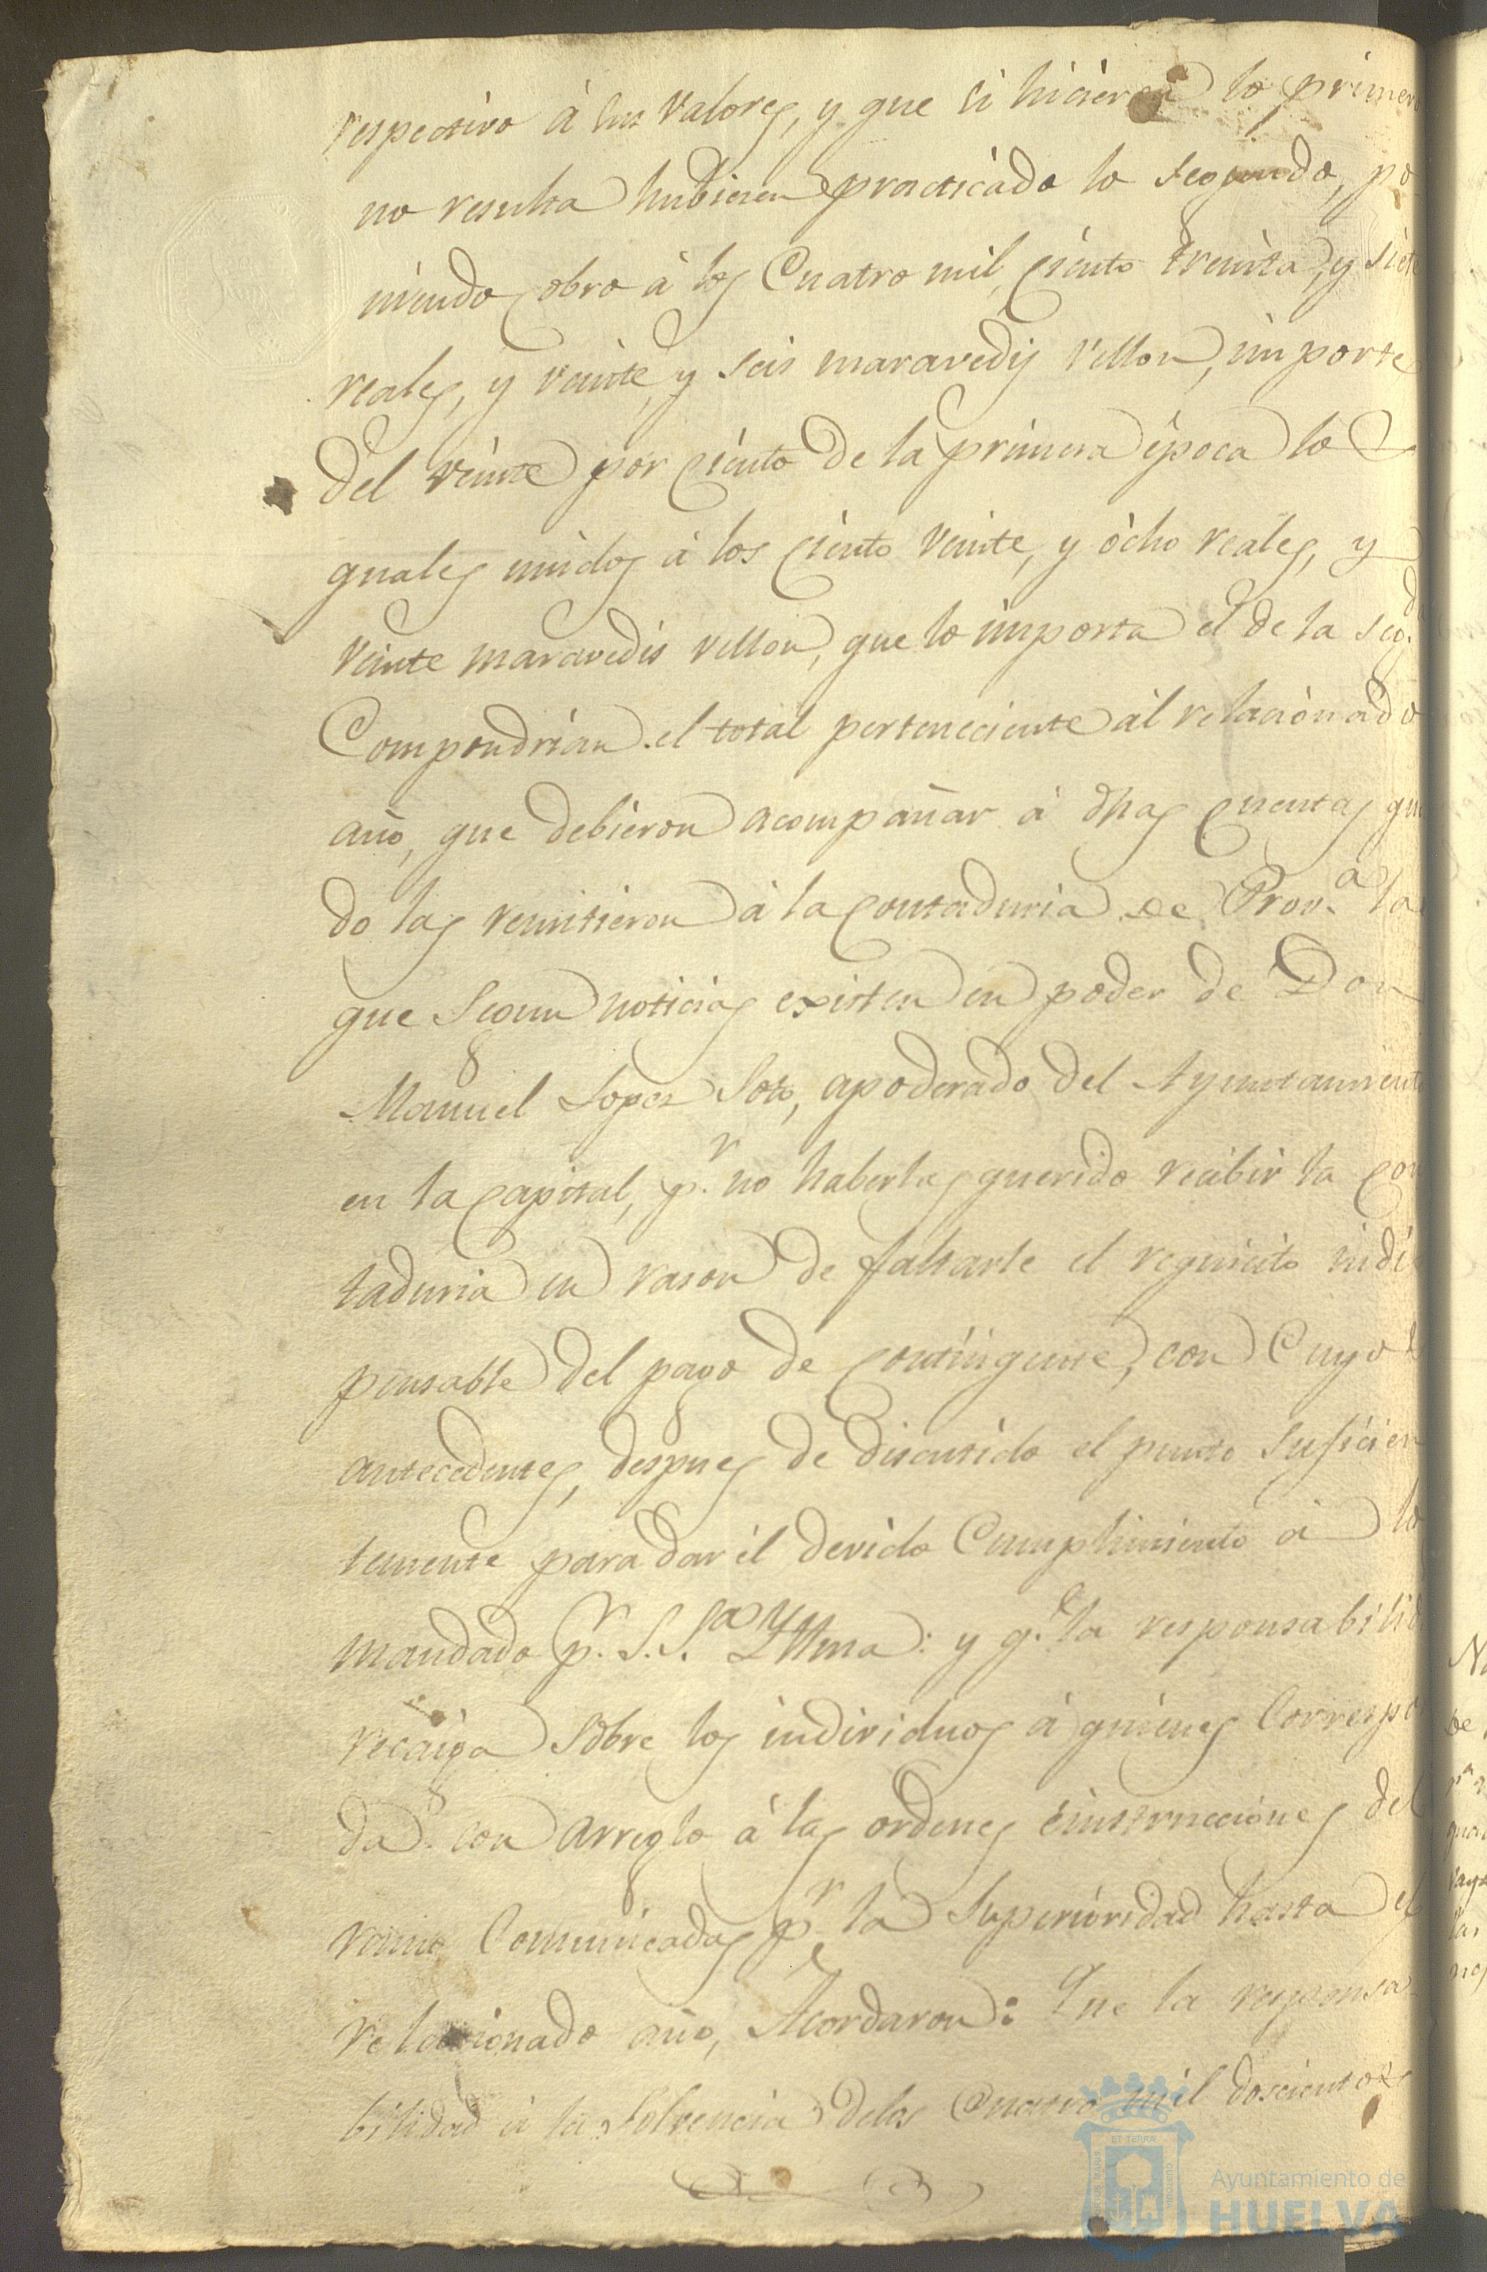 respectivo à sus valores, y que si hicieron lo primer
no resulta hubiesen practicado lo segundo, po
niendo cobro à los Cuatro mil, ciento treinta, y siete
reales, y veinte, y seis maravedis vellon, importe
del veinte por ciento de la primera época lo
quales unidos à los ciento veinte, y òcho reales, y
veinte maravedis vellon, que lo importa el de la seg.d
Compondrian el total perteneciente àl relacionado
año, que debieron acompañar à dhas cuentas qu
do las remitieron à la contaduria de Prov.a la
que segun noticias existen en poder de Don
Manuel Lopez Soto, apoderado del Ayuntamient
en la capital, p.r no haberlas querido recibir la con
taduria en rason de faltarle el requicito indi
pensable del pago de contingente, con Cuyo
antecedentes, despues de discutido el punto suficien
temente para dar èl devido Cumplimiento à lo
mandado p.r S. S.a Yllma: y q.e la responsabilid
recaiga sobre los individuos à quienes correspo
da con arreglo à las ordenes è instrucciones del
ramo Comunicadas p.r la Superioridad hasta el
relacionado año, Acordaron: Que la responsa
bilidad à la solvencia delos Cuatro mil doscientos
Ayuntamiento de
HUELVA